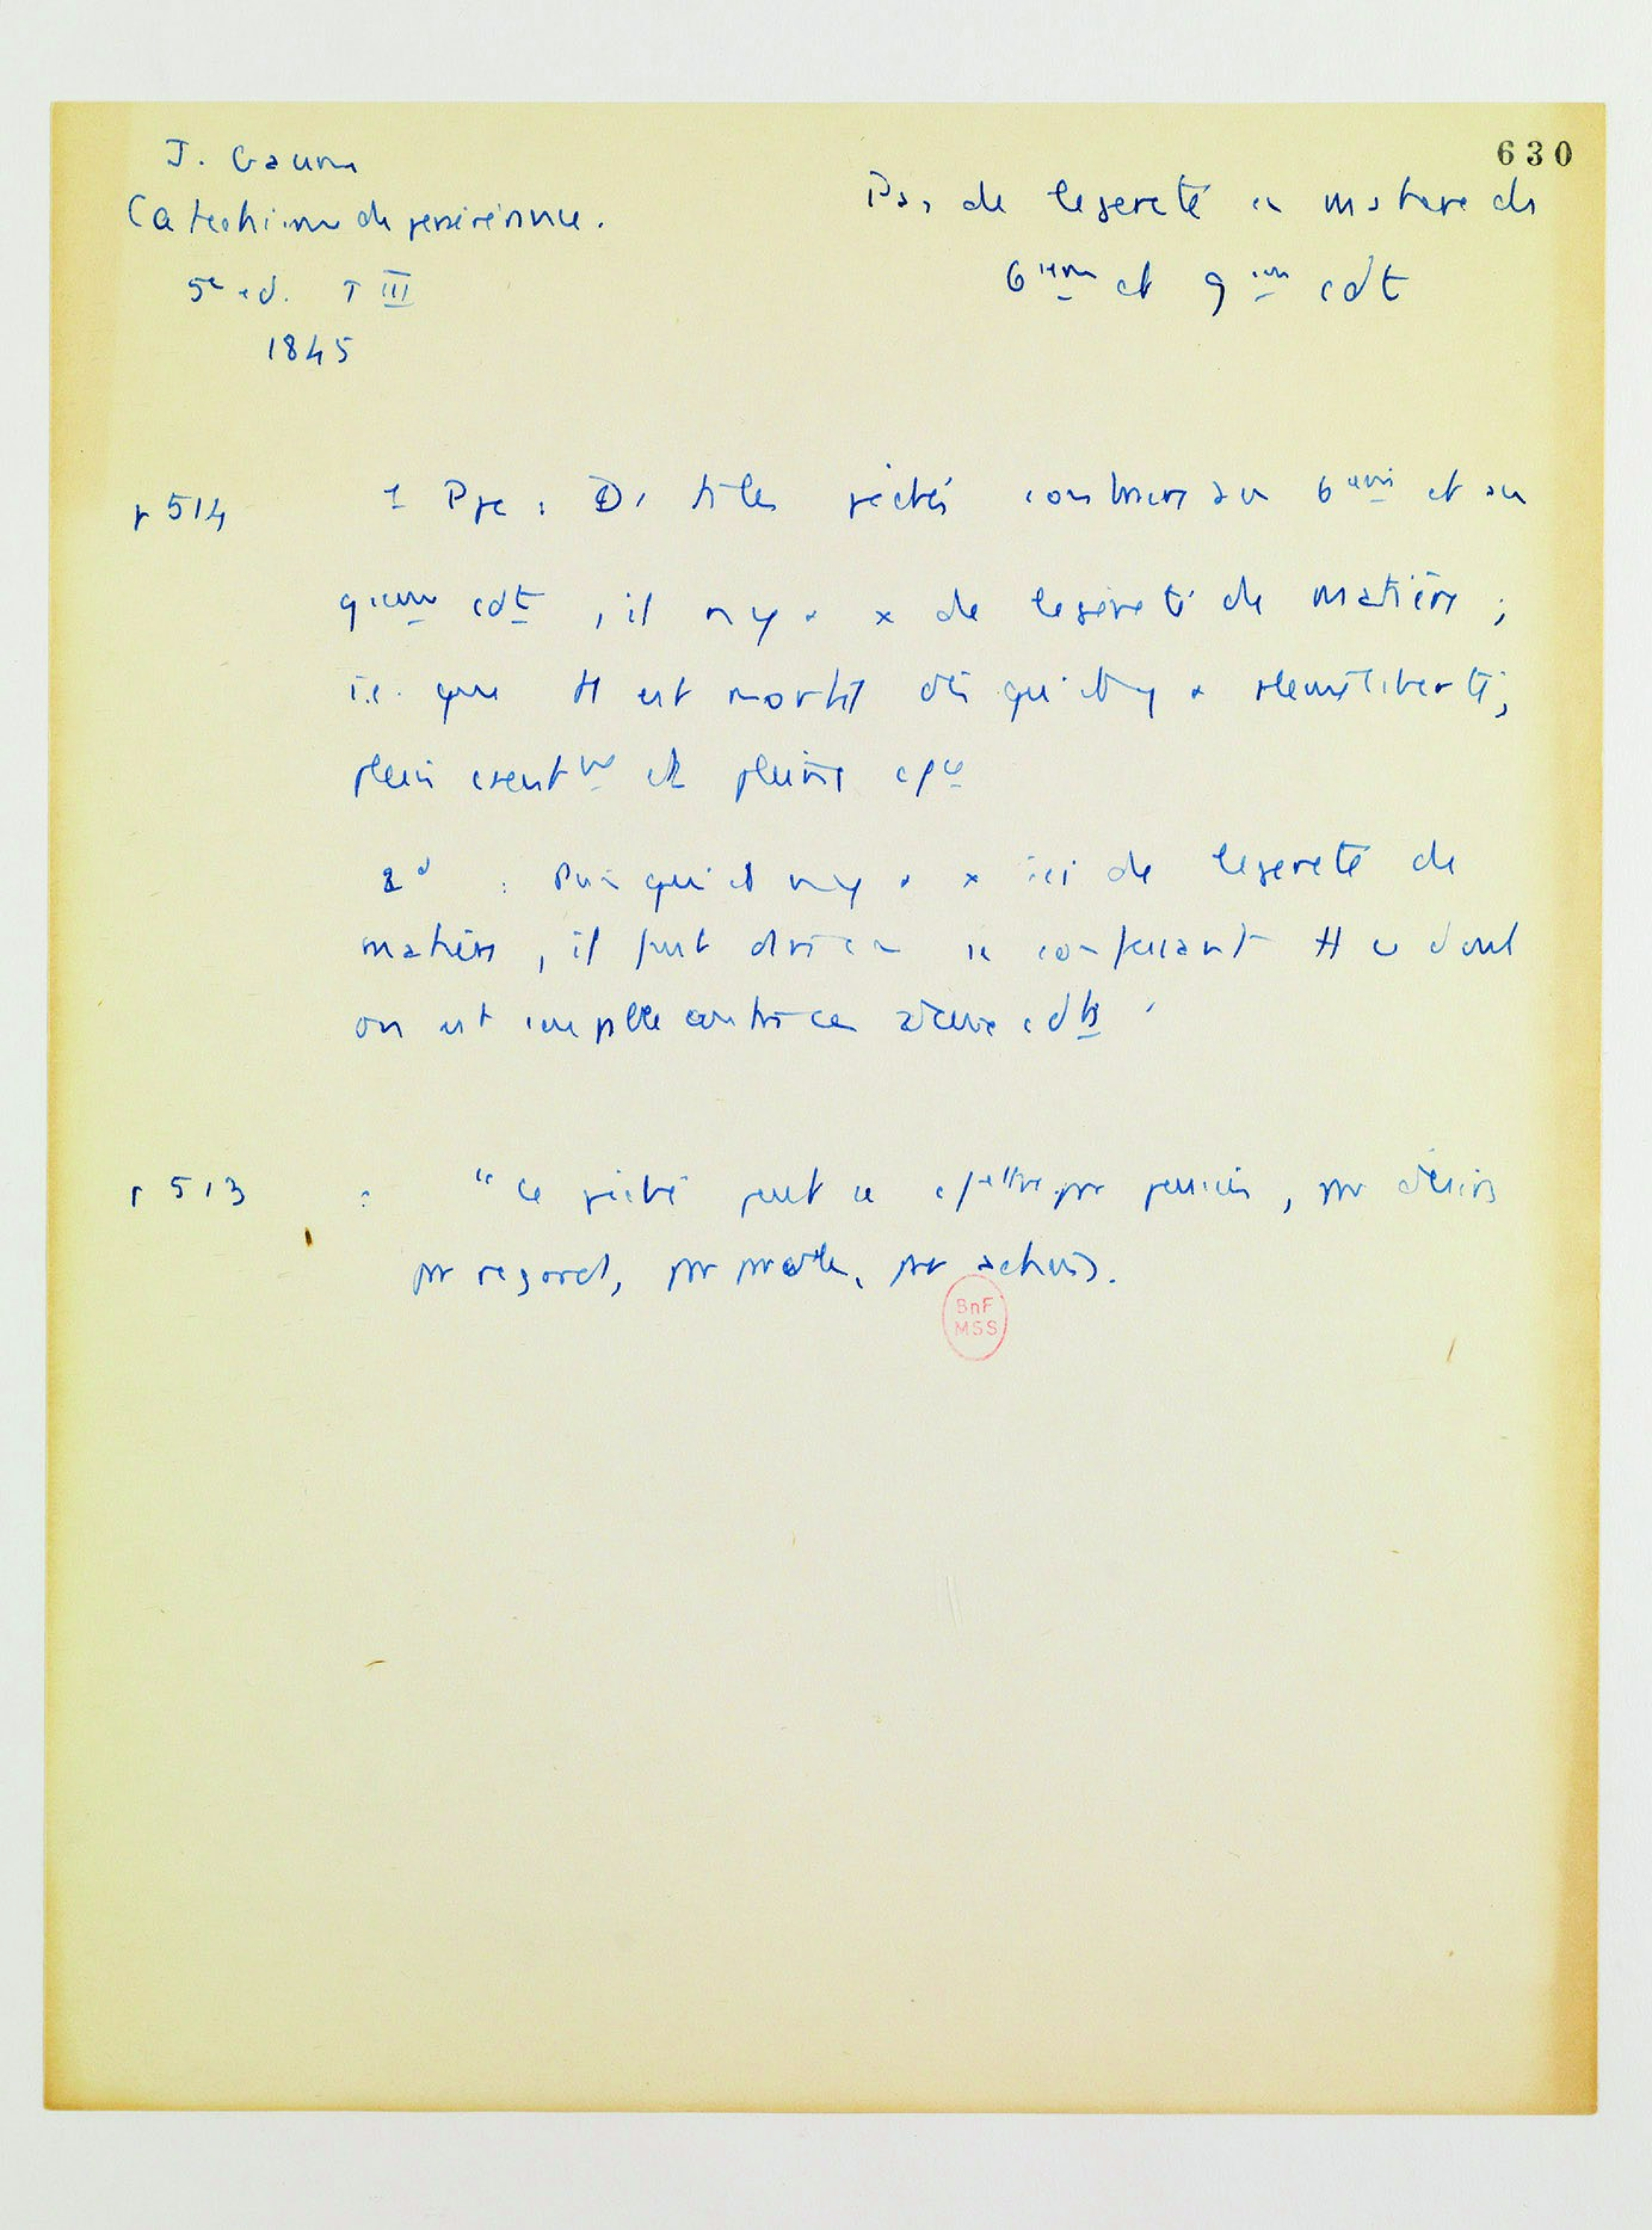 630
J. Gaume
Catechisme de persévérance.
5e ed. T III
1845
Pas de legereté en matiere de
6ieme et 9ieme cdt
p 514 1 Ppe : Ds les péchés contraires au 6eme et au
9ieme cdt, il n y a x de legèreté de matière ;
i.e. que tt est mortel dès qu'il y a pleine liberté,
plein csentmt et pleine
2d : Puisqu'il n y a x ici de legereté de
matière, il faut dire en se confessant tt ce dont
on est coupable contre ces deux cdts
p 513 : "Ce péché peut se cmettre par pensées, par désirs
par regards, par paroles, par actions.
BnF
MSS